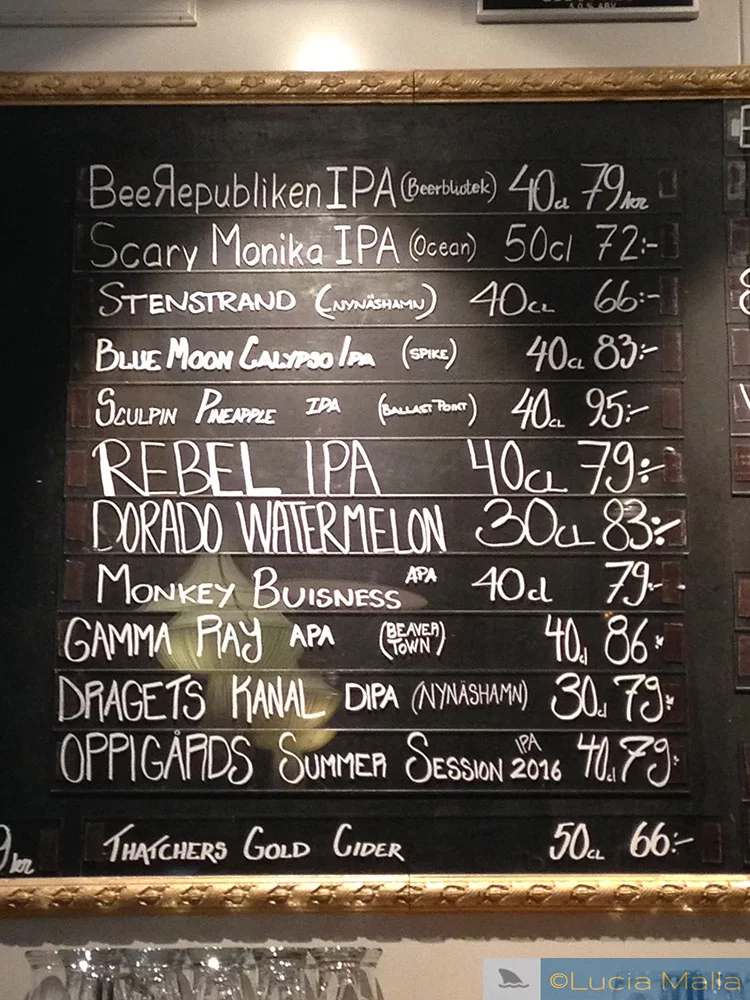 6.0% ABV
BeeRepubliken IPA (Beerbliotek) 40cl 79kr
Scary Monika IPA (Ocean) 50cl 72:-
STENSTRAND (NYNÄSHAMN) 40CL 66:-
BLUE MOON CALYPSO IPA (SPIKE) 40CL 83:-
SCULPIN PINEAPPLE IPA (BALLAST POINT) 40CL 95:-
REBEL IPA 40CL 79:-
DORADO WATERMELON 30CL 83:-
MONKEY BUISNESS APA 40cl 79:-
GAMMA RAY APA (BEAVER TOWN) 40cl 86:-
DRAGETS KANAL DIPA (NYNÄSHAMN) 30cl 79:-
OPPIGÅRDS SUMMER SESSION IPA 2016 40cl 79:-
9kr
THATCHERS GOLD CIDER 50CL 66:-
©Lucia Malla